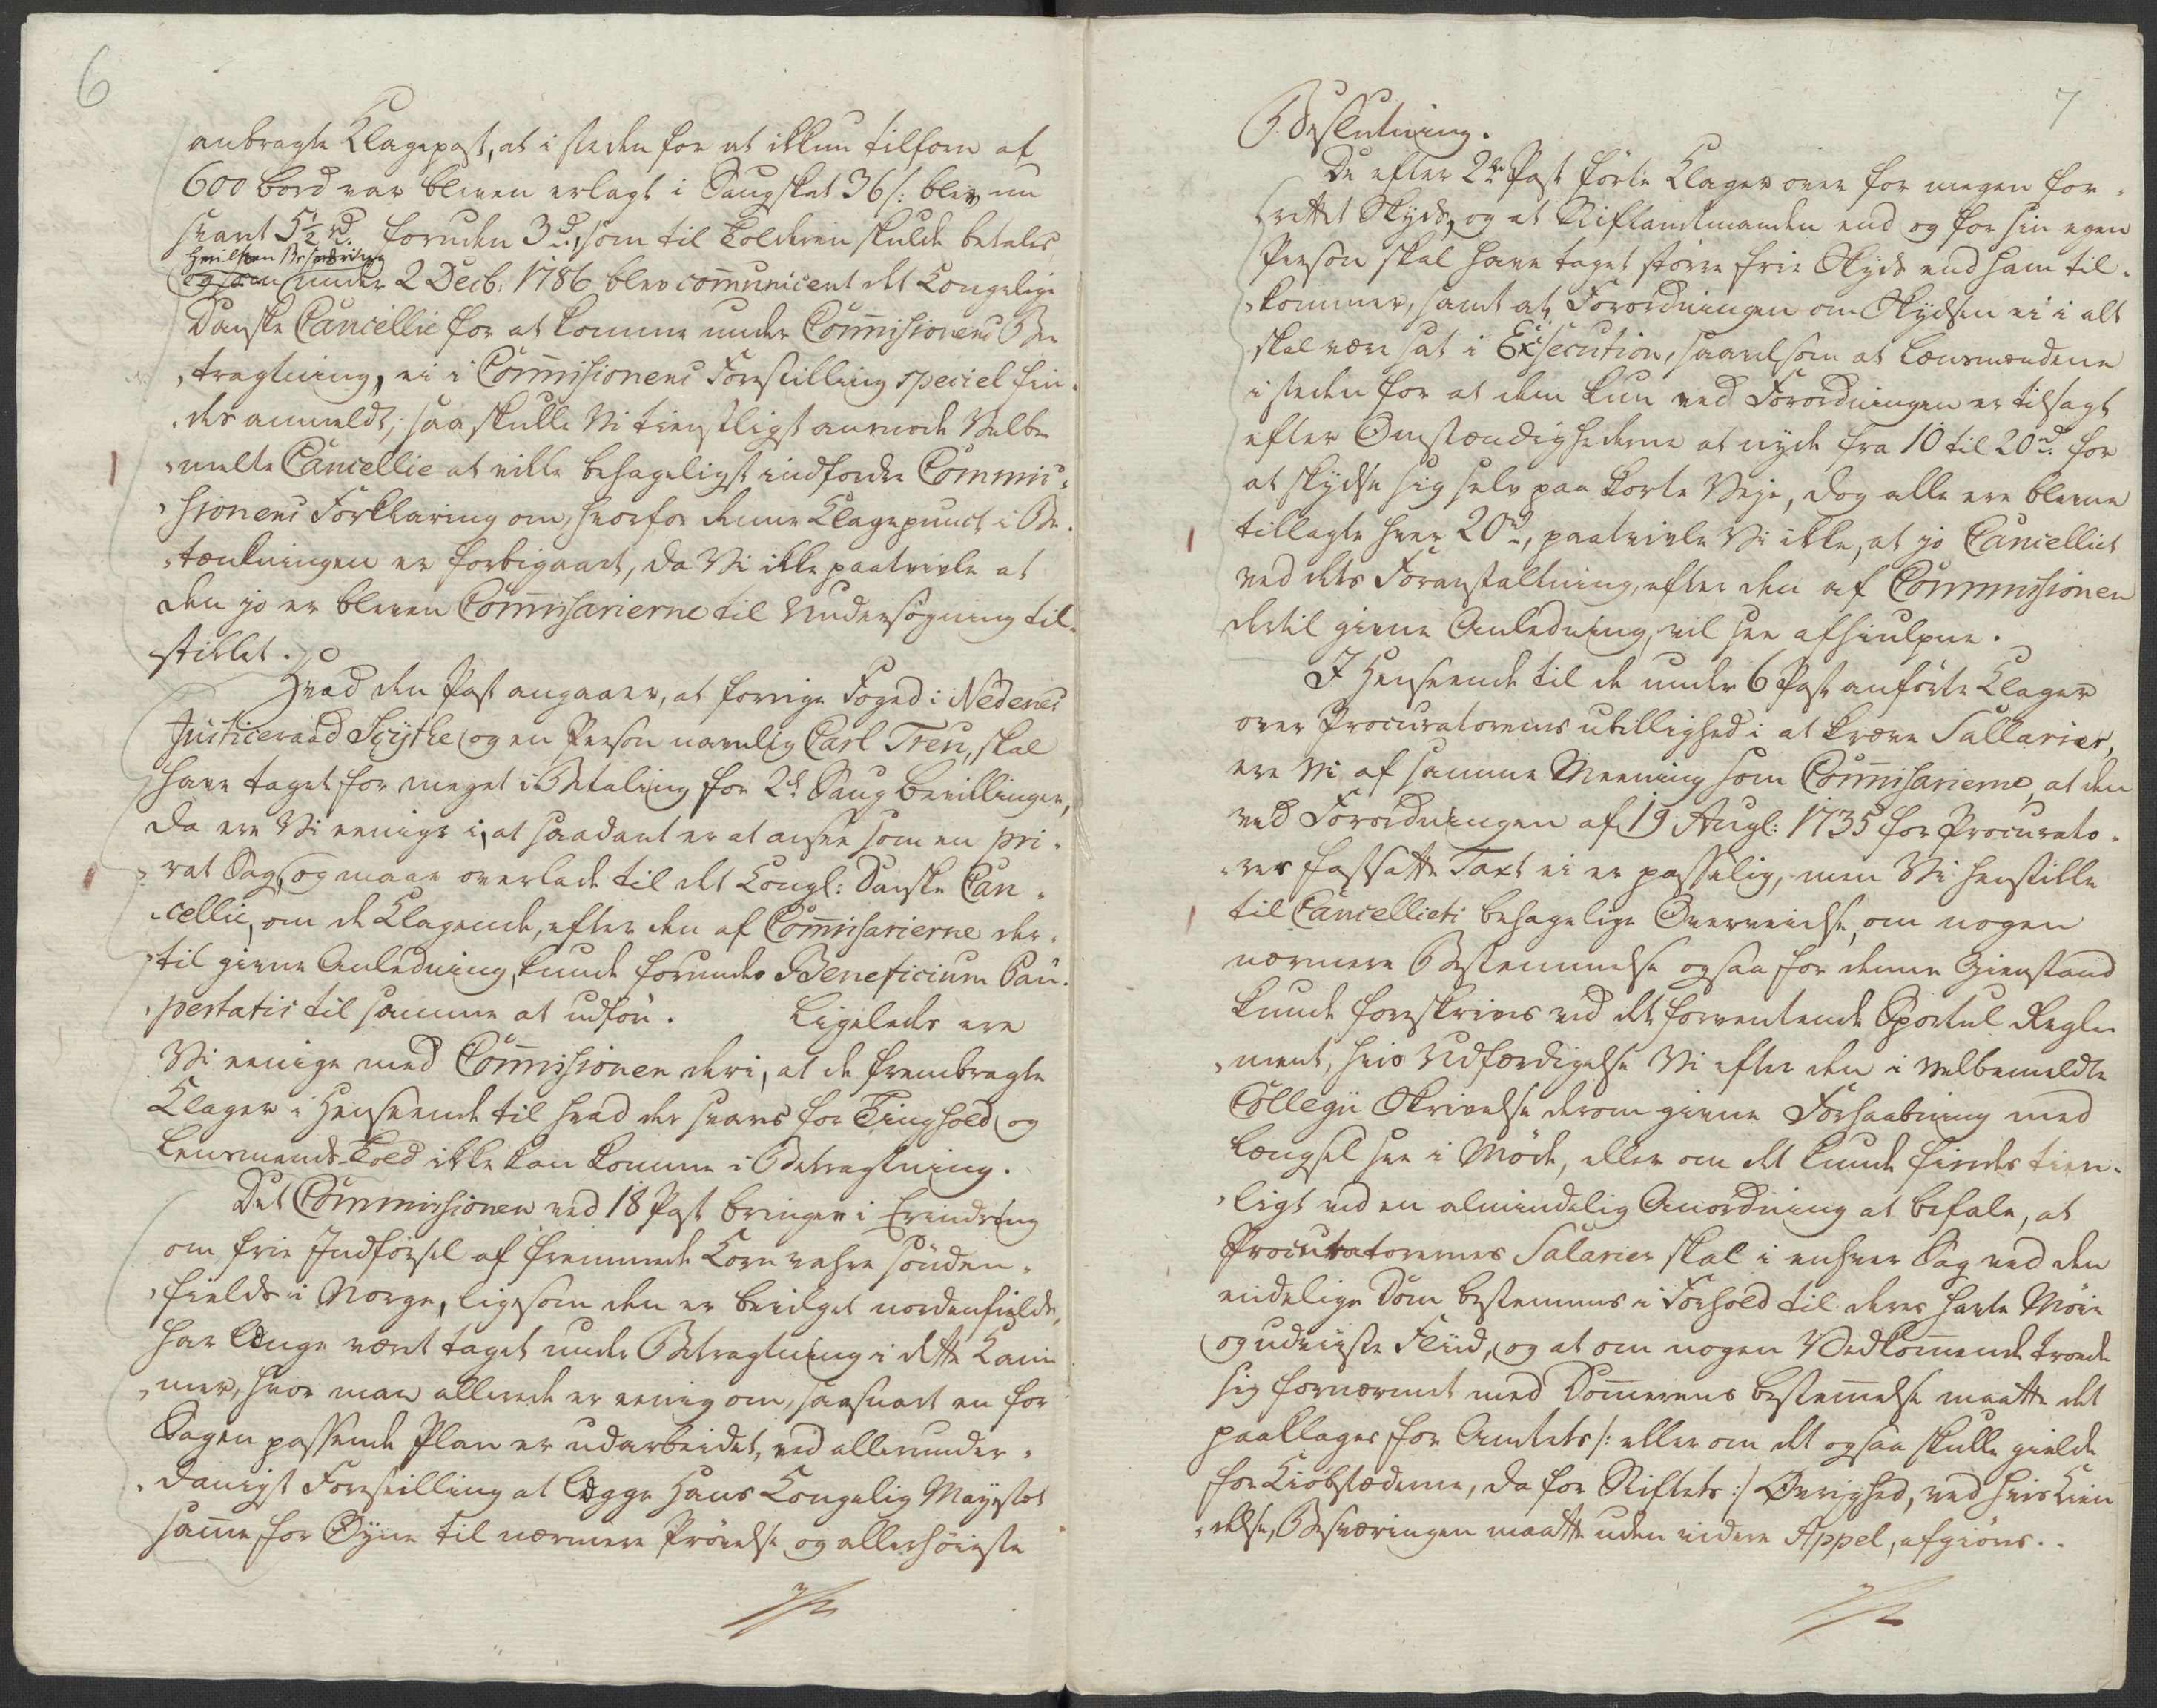 6
anbragte Klagepost, at i steden for at ikkun tilforn af
600 bord var bleven erlagt i Saugskat 36 s: blev nu
svart 5½ rd: foruden 3 d:, som til Tolderen skulde betales
hvilken Besværing
og som under 2 Decb: 1786 blev com̅unicent det Kongelige
Danske Cancellie for at komme under Com̅isionens Be
tragtning, ei i Com̅isionens Forestilling speciel fin-
des anmeldt; saa skulle Vi tienstligst anmode Velbe
melte Cancellie at ville behageligst indfordre Commis-
sionens Forklaring om, hvorfor denne Klagepunct i Be-
tænkningen er forbigaaet, da Vi ikke paatvivle at
den jo er bleven Com̅isarierne til Undersøgning til-
stillet.
Hvad den Post angaaer, at forrige Foged i Nedenes
Justiceraad Scythe og en Person navnlig Carl Treu, skal
have taget for meget i Betaling for 2de Saug bevillinger,
da ere Vi eenige i, at saadant er at ansee som en pri-
vat Sag, og maae overlade til det Kongl: Danske Can-
cellie, om de Klagende, efter den af Com̅isarierne der-
til givne Anledning, kunde forundes Beneficium Pau-
pertatis til samme at udføre. Ligeleds ere
Vi eenige med Com̅isionen deri, at de frembragte
Klager i Henseende til hvad der svares for Tinghold og
Lensmands-Told ikke kan komme i Betragtning.
Det Commissionen ved 18 Post bringer i Erindring
om frie Indførsel af fremmede Korn vahre sønden-
fields i Norge, ligesom den er bevilget nordenfields,
har længe været taget under Betragtning i dette Kam
mer, hvor man allerede er eenig om, saasnart en for
Sagen passende Plan er udarbeidet, ved allerunder-
danigst Forestilling at legge Hans Kongelig Mayestet
sam̅e for Øyne til nærmere Prøvelse og allerhøieste
7
Beslutning.
De efter 2den Post førte Klager over for megen for-
rettet Skyds, og at Stiftamtmanden end og for sin egen
Person skal have taget større frie Skyds end ham til-
kommer, samt at Forordningen om Skydsen ei i alt
skal være sat i Execution, saavelsom at Lensmændene
i steden for at dem kun ved Forordningen er tilsagt
efter Omstændighederne at nyde fra 10 til 20 rd: for
at skydse sig selv paa korte Veje, dog alle ere blevne
tillagte hver 20 rd, paatvivle Vi ikke, at jo Cancelliet
ved dets Foranstaltning, efter den af Commissionen
dertil givne Anledning, vil see afhiulpne.
I Henseende til de under 6 Post anførte Klager
over Procuratorernes ubillighed i at kræve Sallarier,
ere Vi af samme Meening som Com̅isarierne, at den
ved Forordningen af 19 Augl: 1735 for Procurato-
rer fastsatte Taxt ei er passelig, men Vi henstille
til Cancelliets behagelige Overveielse, om nogen
nærmere Bestemmelse ogsaa for denne Gienstand
kunde foreskrives ved det forventende Sportul Regle-
ment, hvis Udfærdigelse Vi efter den i velbemeldte
Collegii Skrivelse derom givne Forhaabning med
Længsel see i Møde, eller om det kunde findes tien-
ligt ved en almindelig Anordning at befale, at
Procuratorernes Salarier skal i enhver Sag ved den
endelige Dom bestemmes i Forhold til deres havte Møie
og udviiste Fliid, og at om nogen Vedkom̅ende troede
sig fornærmet med Dom̅erens bestem̅else maatte det
paaklages for Amtets /: eller om det ogsaa skulle gielde
for Kiøbstæderne, da for Stiftets :/ Øvrighed, ved hvis Kien
delse, Besværingen maatte uden videre Appel, afgiøres.